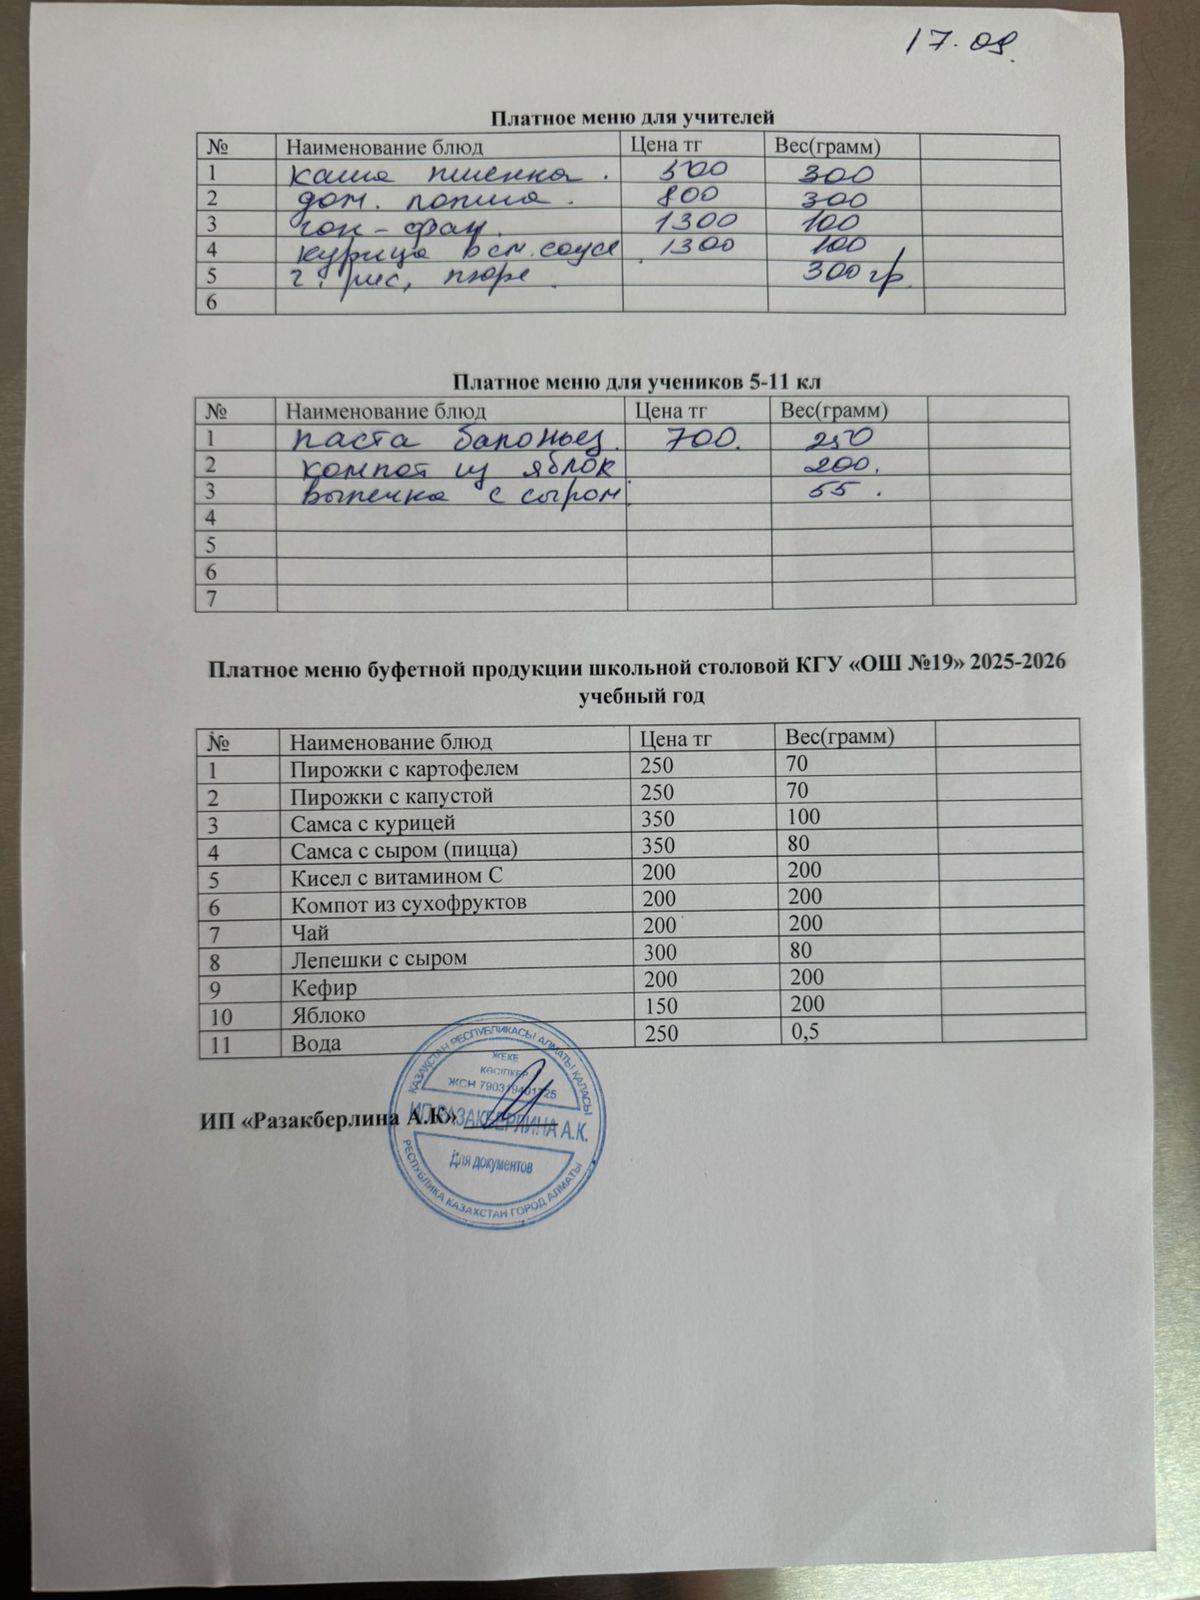 17.09.
Платное меню для учителей
№ Наименование блюд Цена тг Вес(грамм)
1 каша пшенка. 500 300
2 дом. лапша. 800 300
3 гон-фан. 1300 100
4 курица в см. соусе. 1300 100
5 г. рис, пюре. 300 гр.
6
Платное меню для учеников 5-11 кл
№ Наименование блюд Цена тг Вес(грамм)
1 паста балоньез. 700. 250
2 компот из яблок 200.
3 выпечка с сыром. 55.
4
5
6
7
Платное меню буфетной продукции школьной столовой КГУ «ОШ №19» 2025-2026
учебный год
№ Наименование блюд Цена тг Вес(грамм)
1 Пирожки с картофелем 250 70
2 Пирожки с капустой 250 70
3 Самса с курицей 350 100
4 Самса с сыром (пицца) 350 80
5 Кисел с витамином С 200 200
6 Компот из сухофруктов 200 200
7 Чай 200 200
8 Лепешки с сыром 300 80
9 Кефир 200 200
10 Яблоко 150 200
11 Вода 250 0,5
ИП «Разакберлина А.К»
ҚАЗАҚСТАН РЕСПУБЛИКАСЫ АЛМАТЫ ҚАЛАСЫ
ЖЕКЕ
КӘСІПКЕР
ЖСН
ИП РАЗАКБЕРЛИНА А.К.
Для документов
РЕСПУБЛИКА КАЗАХСТАН ГОРОД АЛМАТЫ